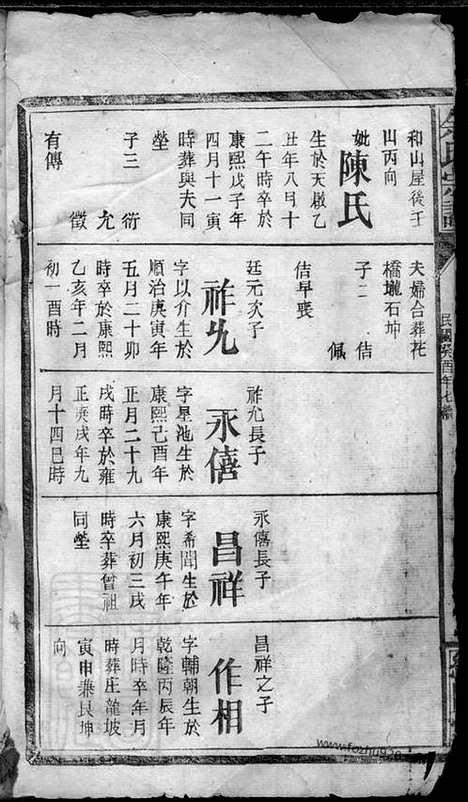 和山屋後壬
山丙向
妣陳氏
生於天啟乙
丑年八月十
二午時卒於
康熙戊子年
四月十一寅
時葬與夫同
塋
子三 衍
允
徵
有傳
夫婦合葬花
橋壠石坤
子二 佶
佩
佶早喪
廷元次子
祚允
字以介生於
順治庚寅年
五月二十卯
時卒於康熙
乙亥年二月
初一酉時
祚允長子
永僖
字星池生於
康熙己酉年
正月二十九
戌時卒於雍
正庚戌年九
月十四巳時
永僖長子
昌祥
字希聞生於
康熙庚午年
六月初三戌
時卒葬曾祖
同塋
昌祥之子
作相
字輔朝生於
乾隆丙辰年
月時卒年月
時葬庄龍坡
寅申兼艮坤
向
氏宗譜
民國癸酉年七修
www.fozhu920.com